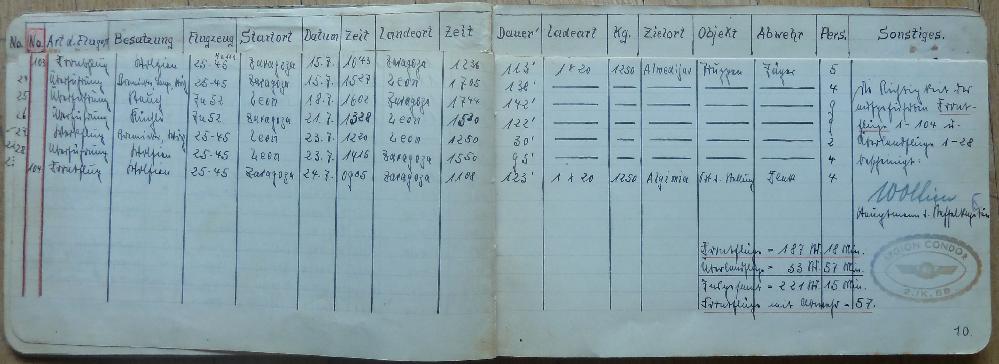 No. No. Art d. Fluges Besatzung Flugzeug Startort Datum Zeit Landeort Zeit Dauer Ladeart Kg. Zielort Objekt Abwehr Pers. Sonstiges.
103 Frontflug 25-45 Zaragoza 15.7. 1043 Zaragoza 1236 113' 1 x 20 1250 Almedijar Truppen Jäger 5
Überführung 25-45 Zaragoza 15.7. 1527 Leon 1705 138' 4
25 Überführung Ju 52 Leon 18.7. 1602 Zaragoza 1744 142'
26 Überführung Ju 52 Zaragoza 21.7. 1328 Leon 1530 122'
25-45 Leon 23.7. 1220 Leon 1250 30' 2
28 Überführung 25-45 Leon 23.7. 1415 Zaragoza 1550 95' 4
104 Frontflug 25-45 Zaragoza 24.7. 0905 Zaragoza 1108 123' 1 x 20 1250 Algimia Flak 4
Die Richtigkeit der
aufgeführten Front-
flüge 1-104 u.
Überlandflüge 1-28
bescheinigt:
Hauptmann u. Staffelkapitän
Frontflüge = 187 St. 18 Min.
Überlandflüge = 33 St. 57 Min.
Insgesamt = 221 St. 15 Min.
Frontflüge mit Abwehr = 57.
LEGION CONDOR
2./K. 88
10.